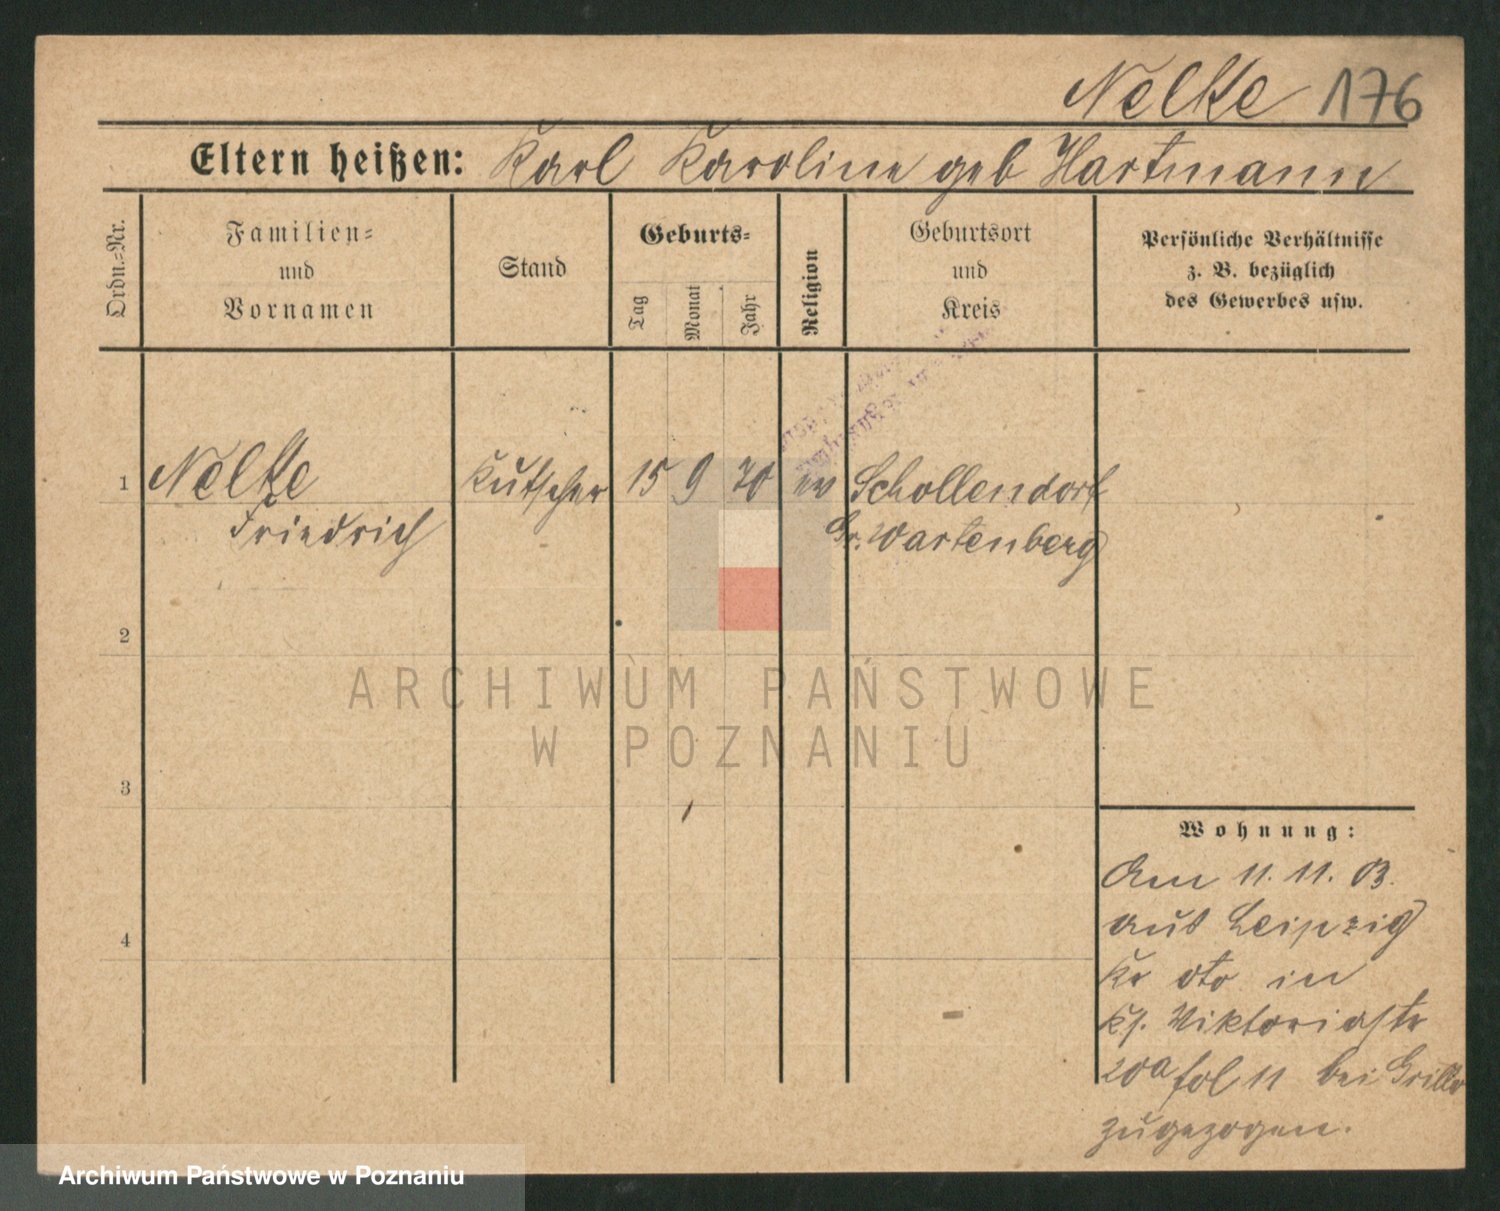 Nelke 176
Eltern heißen: Karl Karoline geb Hartmann
Ordn.-Nr.
Familien-
und
Vornamen
Stand
Geburts-
Tag
Monat
Jahr
Religion
Geburtsort
und
Kreis
Persönliche Verhältnisse
z. B. bezüglich
des Gewerbes usw.
1 Nelke Kutscher 15 9 70 ev Schollendorf
Friedrich Gr. Wartenberg
2
ARCHIWUM PAŃSTWOWE
W POZNANIU
3
Wohnung:
Am 11. 11. 03.
aus Leipzig
4
Kr dto in
Ks. Viktoriastr
20a fol 11 bei Griller
zugezogen.
Archiwum Państwowe w Poznaniu